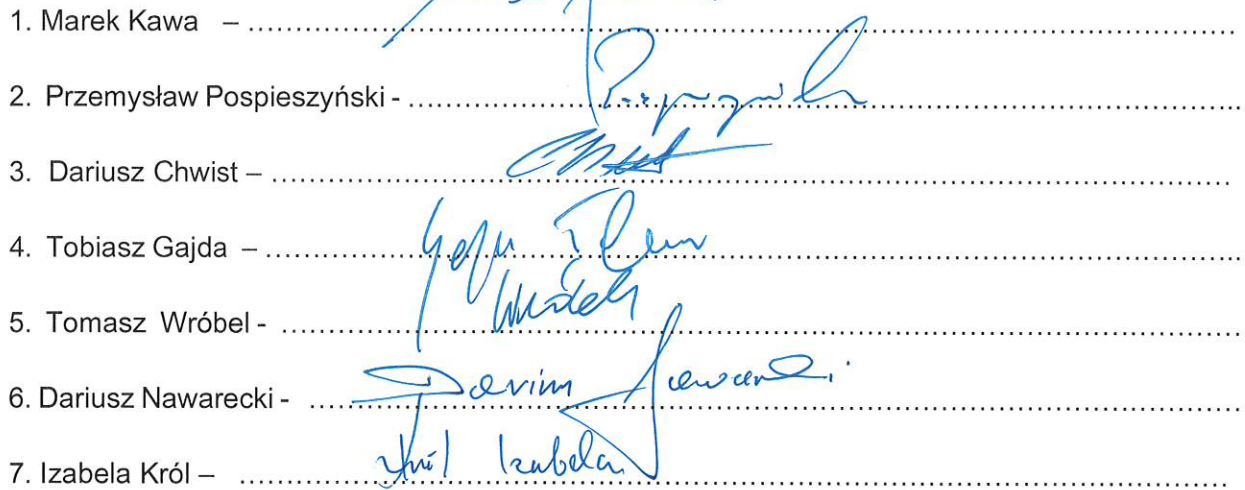 1. Marek Kawa – ........................................
2. Przemysław Pospieszyński - ........................................
3. Dariusz Chwist – ........................................
4. Tobiasz Gajda – ........................................
5. Tomasz Wróbel - ........................................ Wróbel
6. Dariusz Nawarecki - ........................................ Dariusz Nawarecki
7. Izabela Król – ........................................ Król Izabela